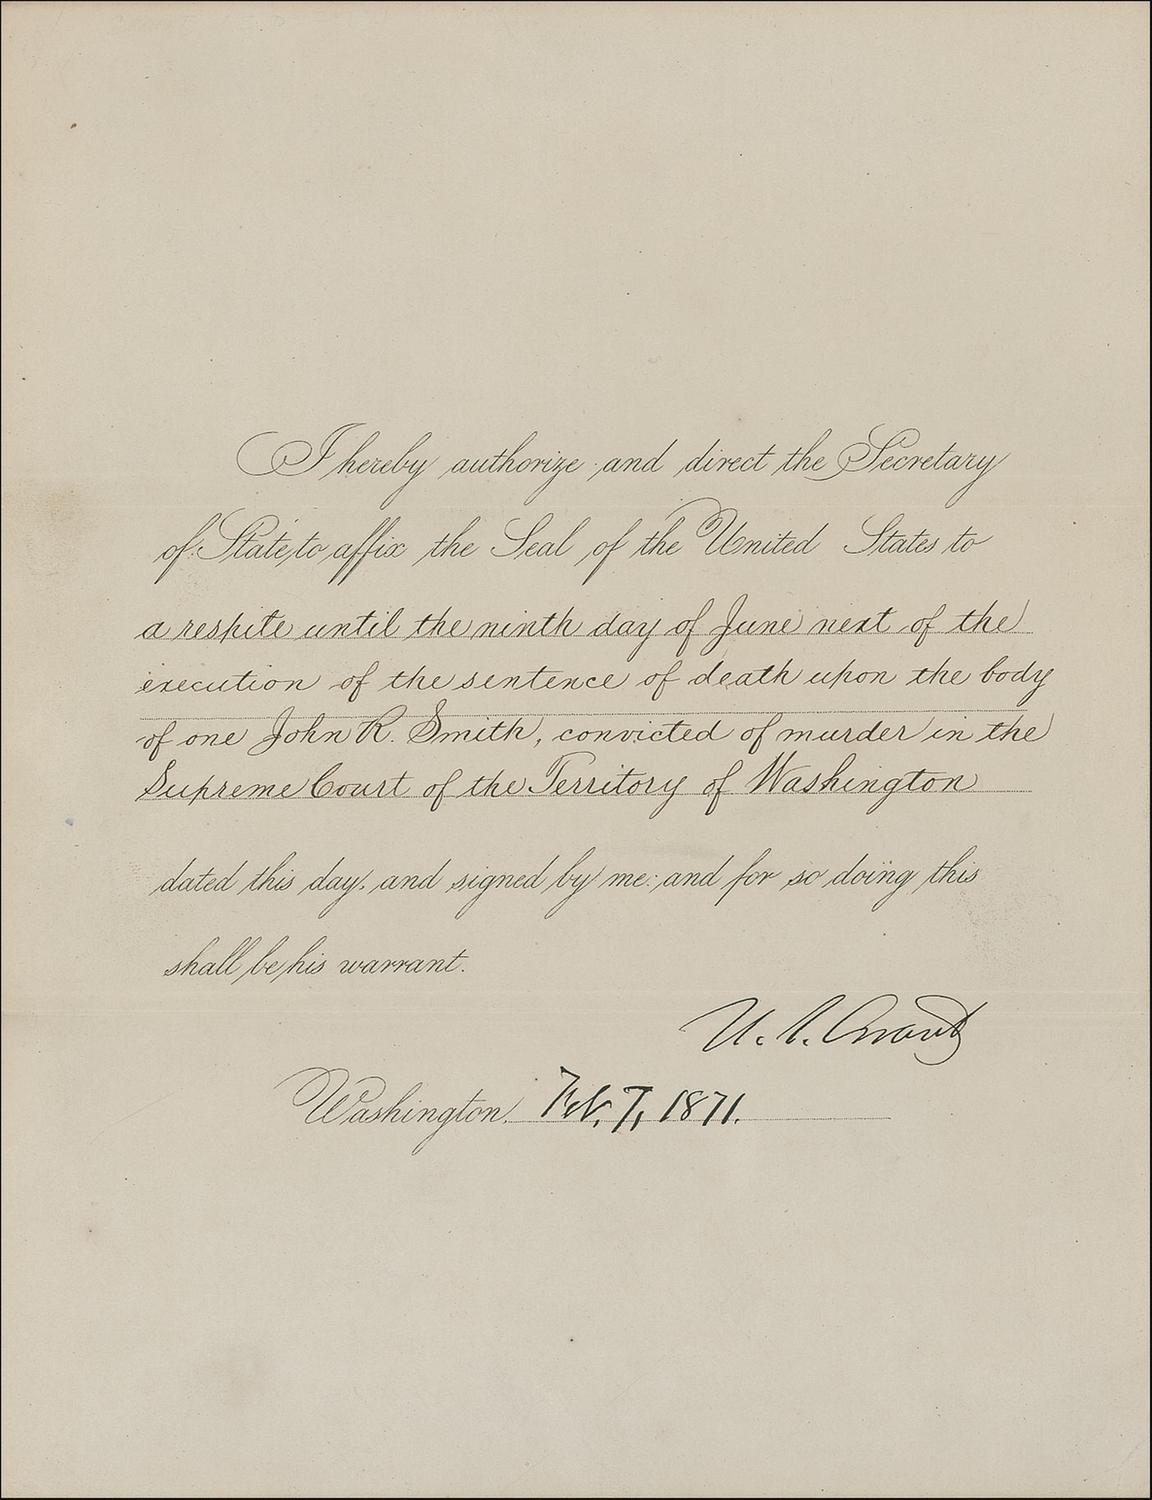 I hereby authorize and direct the Secretary
of State to affix the Seal of the United States to
a respite until the ninth day of June next of the
execution of the sentence of death upon the body
of one John R. Smith, convicted of murder in the
Supreme Court of the Territory of Washington
dated this day, and signed by me: and for so doing this
shall be his warrant.
U. S. Grant
Washington, Feb. 7, 1871.